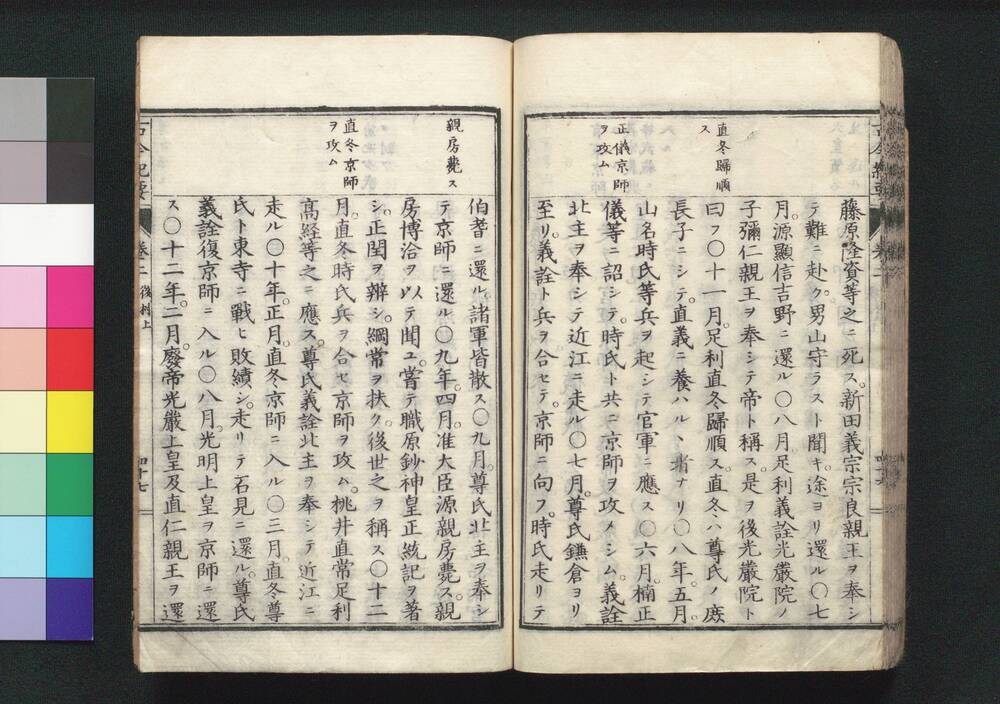 直冬歸順
ス
正儀京師
ヲ攻ム
藤原隆資等之ニ死ス。新田義宗宗良親王ヲ奉シ
テ難ニ赴ク。男山守ラスト聞キ。途ヨリ還ル〇七
月。源顯信吉野ニ還ル〇八月足利義詮光嚴院ノ
子彌仁親王ヲ奉シテ帝ト稱ス。是ヲ後光嚴院ト
曰フ〇十一月。足利直冬歸順ス。直冬ハ尊氏ノ庶
長子ニシテ。直義ニ養ハルヽ者ナリ〇八年。五月。
山名時氏等兵ヲ起シテ官軍ニ應ス〇六月。楠正
儀等ニ詔シテ。時氏ト共ニ京師ヲ攻メシム。義詮
北主ヲ奉シテ近江ニ走ル〇七月。尊氏鎌倉ヨリ
至リ。義詮ト兵ヲ合セテ。京師ニ向フ。時氏走リテ
親房薨ス
直冬京師
ヲ攻ム
伯耆ニ還ル。諸軍皆散ス〇九月。尊氏北主ヲ奉シ
テ京師ニ還ル〇九年。四月。准大臣源親房薨ス。親
房博洽ヲ以テ聞ユ。嘗テ職原鈔神皇正統記ヲ著
シ。正閏ヲ辨シ。綱常ヲ扶ク。後世之ヲ稱ス〇十二
月。直冬時氏兵ヲ合セ京師ヲ攻ム。桃井直常足利
高経等之ニ應ス。尊氏義詮北主ヲ奉シテ近江ニ
走ル〇十年。正月。直冬京師ニ入ル〇三月。直冬尊
氏ト東寺ニ戰ヒ敗績シ。走リテ石見ニ還ル。尊氏
義詮復京師ニ入ル〇八月。光明上皇ヲ京師ニ還
ス〇十二年。二月。廢帝光嚴上皇及直仁親王ヲ還
卷二 後村上
四十七